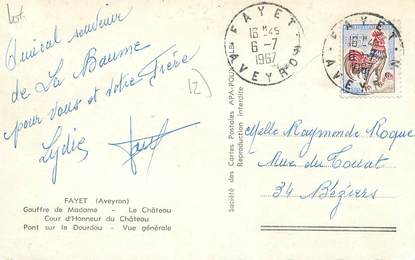 Amical souvenir
de La Baume
pour vous et votre Frère
Lydie
FAYET (Aveyron)
Gouffre de Madame - Le Château
Cour d'Honneur du Château
Pont sur le Dourdou - Vue générale
Société des Cartes Postales APA-POUX - ALBI
Reproduction interdite
FAYET
16H45
6-7
1967
AVEYRON
FAYET
AVEYRON
Melle Raymonde Roque
Rue du Touat
34 Béziers
12